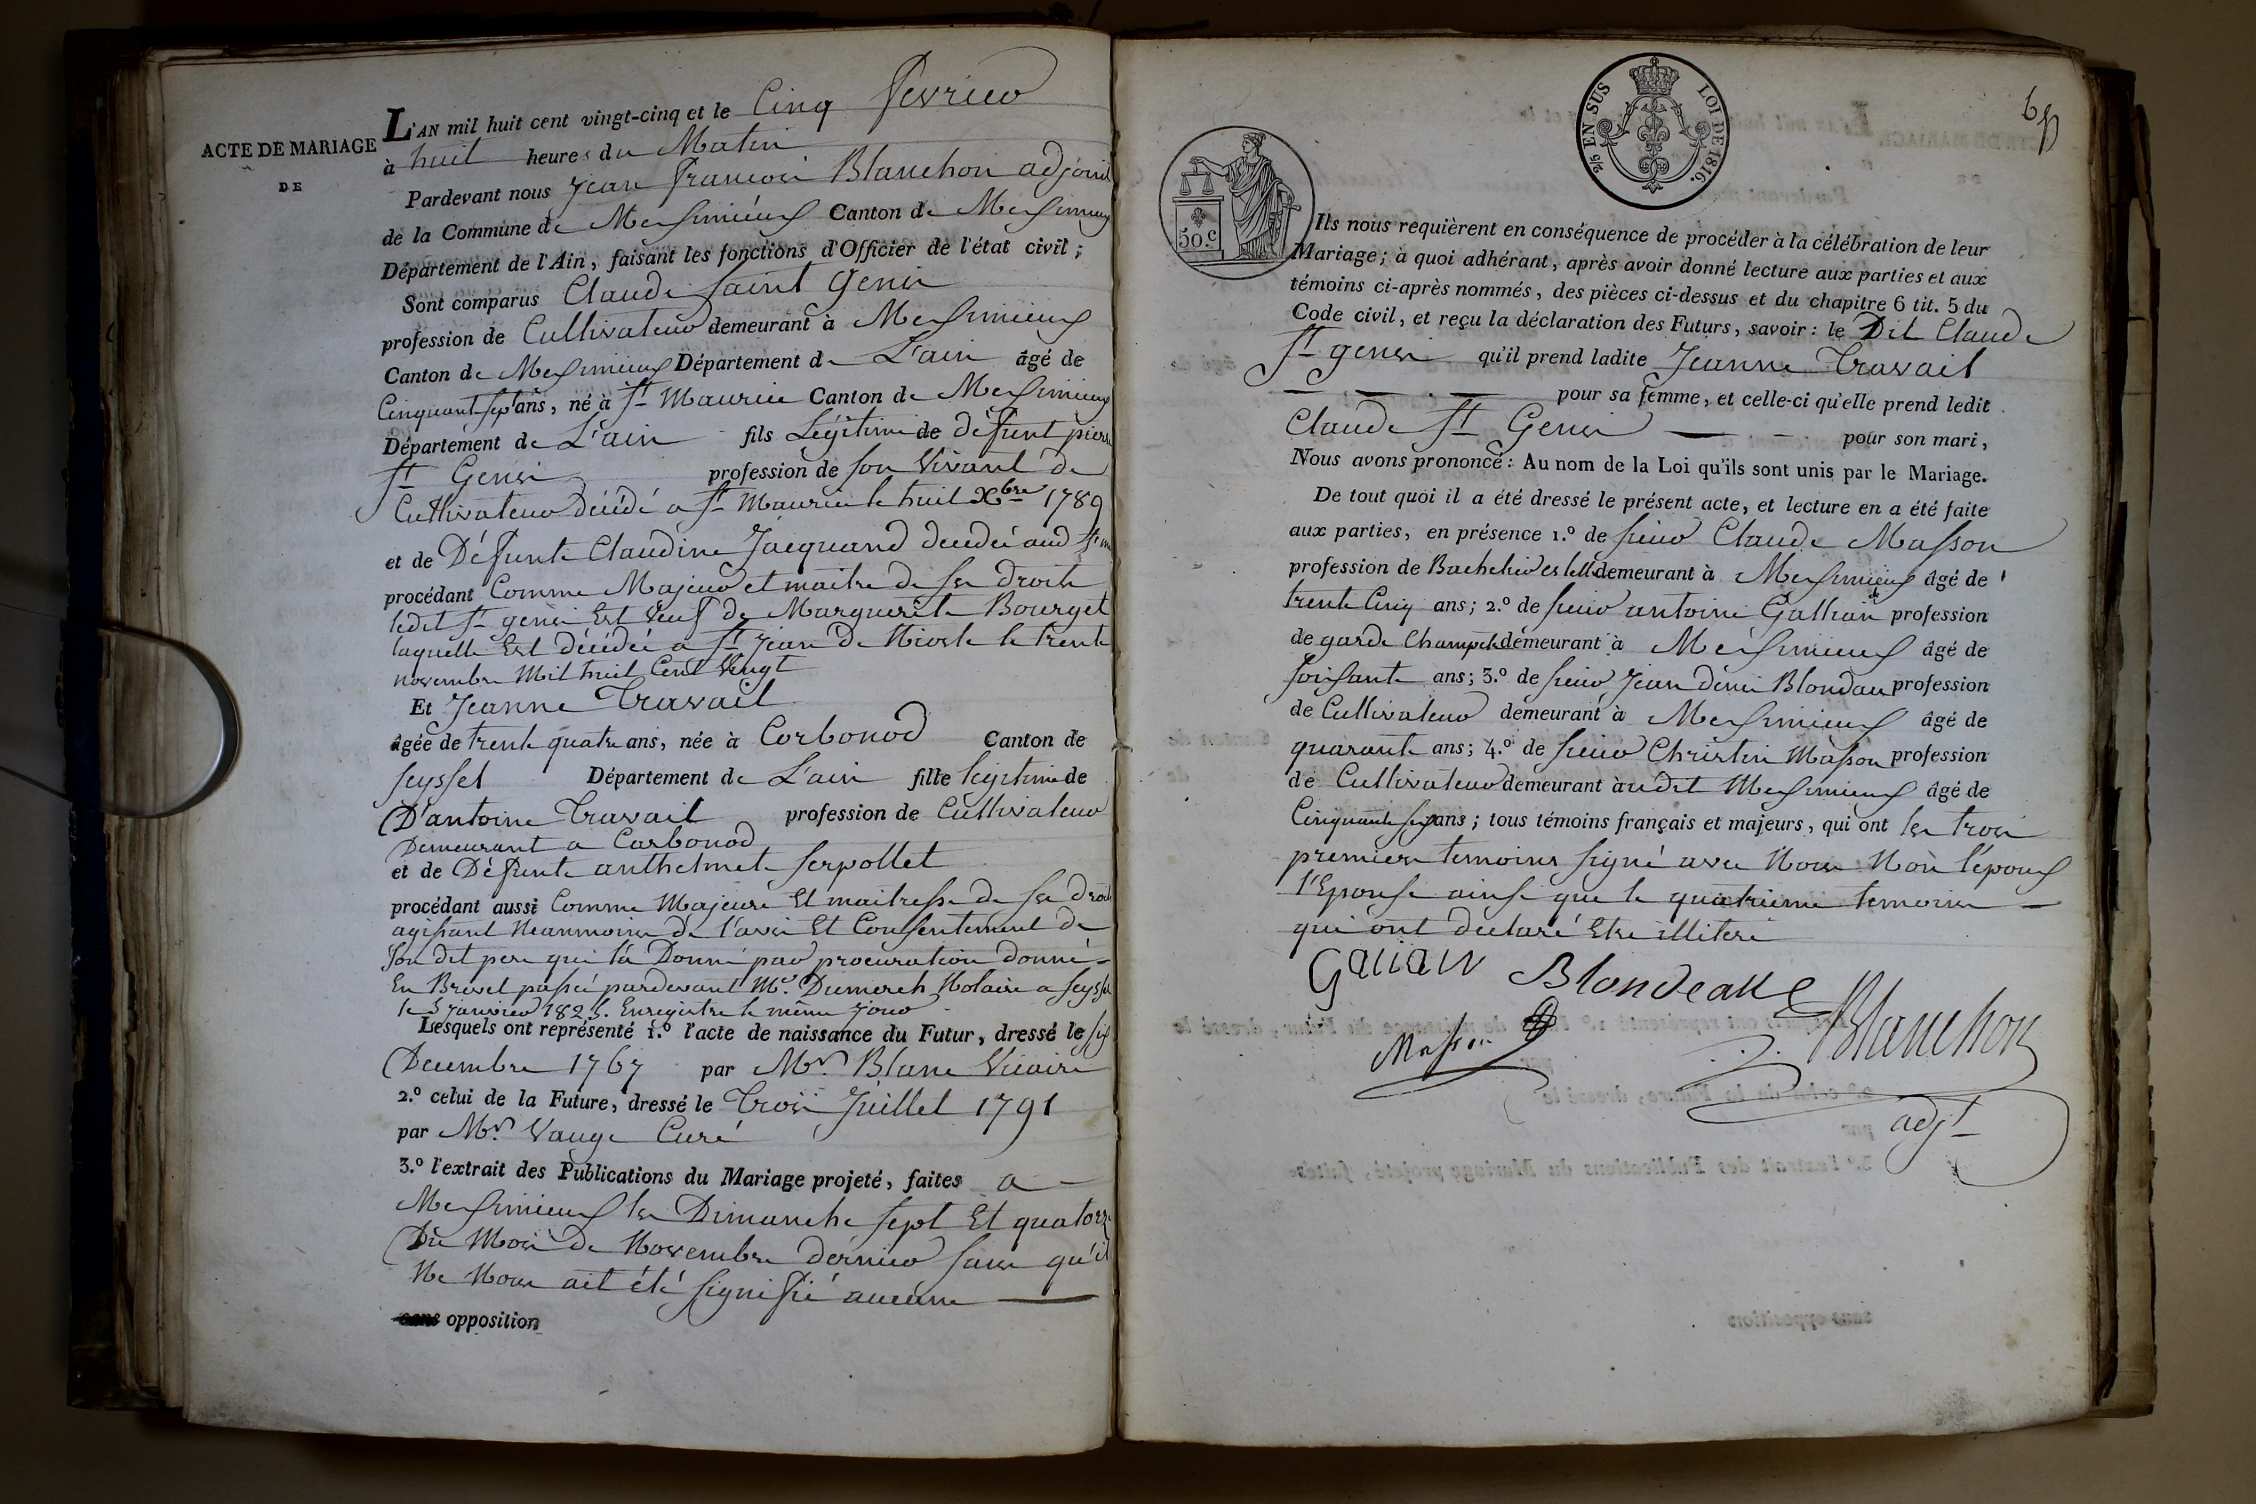 ACTE DE MARIAGE
DE
L'AN mil huit cent vingt-cinq et le Cinq fevrier
à huit heures du Matin
Pardevant nous Jean françois Blanchon adjoint
de la Commune de Messimieux Canton de Messimieux
Département de l'Ain, faisant les fonctions d'Officier de l'état civil ;
Sont comparus Claude Saint Genis
profession de Cultivateur demeurant à Messimieux
Canton de Messimieux Département de L'ain âgé de
Cinquant sept ans, né à St Maurice Canton de Messimieux
Département de L'ain fils Légitime de défunt pierre
St Genis profession de son vivant de
Cultivateur décédé a St Maurice le huit Xbre 1789
et de Défunte Claudine Jacquand decedée aud St m
procédant Comme Majeur et maitre de ses droits
ledit St genis Est Veuf de Marguerite Bourget
laquelle Est décédée a St Jean de Niost le trente
novembre Mil huit Cent Vingt
Et Jeanne Travail
âgée de trente quatre ans, née à Corbonod Canton de
seyssel Département de L'ain fille légitime de
D'antoine Travail profession de Cultivateur
Demeurant a Corbonod
et de Défunte anthelmet serpollet
procédant aussi Comme Majeure Et maitresse de ses droits
agissant Neanmoins de l'avis Et Consentement de
son dit pere qui l'a Donné par procuration donné
En Brevet passée pardevant Me Dumerch Notaire a seyssel
le 5 janvier 1825. Enregistre le même jour
Lesquels ont représenté 1.º l'acte de naissance du Futur, dressé le six
Decembre 1767 par Mr Blanc Vicaire
2.º celui de la Future, dressé le Trois Juillet 1791
par Mr Vauge Curé
3.º l'extrait des Publications du Mariage projeté, faites a
Messimieux les Dimanche sept Et quatorze
Du Mois de Novembre dernier sans qu'il
Ne Nous ait été signifié aucune
sans opposition
65
2/5 EN SUS LOI DE 1816.
50.c
Ils nous requièrent en conséquence de procéder à la célébration de leur
Mariage; à quoi adhérant, après avoir donné lecture aux parties et aux
témoins ci-après nommés, des pièces ci-dessus et du chapitre 6 tit. 5 du
Code civil, et reçu la déclaration des Futurs, savoir : le Dit Claude
St genis qu'il prend ladite Jeanne Travail
pour sa femme, et celle-ci qu'elle prend ledit
Claude St Genis pour son mari,
Nous avons prononcé : Au nom de la Loi qu'ils sont unis par le Mariage.
De tout quoi il a été dressé le présent acte, et lecture en a été faite
aux parties, en présence 1.º de sieur Claude Masson
profession de Bachelier es lett demeurant à Messimieux âgé de
trente Cinq ans; 2.º de sieur antoine Gallian profession
de garde Champetre demeurant à Messimieux âgé de
soissante ans; 3.º de sieur Jean denis Blondau profession
de Cultivateur demeurant à Messimieux âgé de
quarante ans; 4.º de sieur Christin Masson profession
de Cultivateur demeurant à udit Messimieux âgé de
Cinquante ans; tous témoins français et majeurs, qui ont les trois
premiers temoins signé avec Nous Non l'époux
l'Epouse ainsi que le quatrieme temoin
qui ont declaré Etre illiteré
Galian Blondeaue
Masson Blanchon
adjt